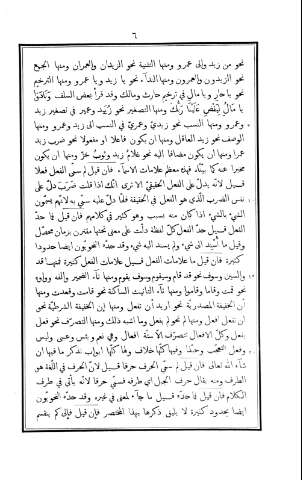 ٦
نحو من زيد والى عمرو ومنها التثنية نحو الزيدان والعمران ومنها الجمع
نحو الزيدون والعمرون ومنها النداء نحو يا زيد ويا عمرو ومنها الترخيم
نحو يا حار ويا مال فى ترخيم حارث ومالك وقد قرأ بعض السلف وَنَادَوْا
يَا مَالُ لِيَقْضِ عَلَيْنَا رَبُّكَ ومنها التصغير نحو زُبَيد وعمير فى تصغير زيد
وعمرو ومنها النسب نحو زيدىّ وعمرىّ فى النسب الى زيد وعمرو ومنها
الوصف نحو زيد العاقل ومنها ان يكون فاعلا او مفعولا نحو ضرب زيد
عمرا ومنها ان يكون مضافا اليه نحو غلامُ زيد وثوبُ خزّ ومنها ان يكون
مخبرا عنه كما بيناه فهذه معظم علامات الاسماء فان قيل لم سمّى الفعل فعلا
قيل لانه يدلّ على الفعل الحقيقىّ الا ترى انك اذا قلت ضَرَبَ دلّ على
نفس الضرب الذى هو الفعل فى الحقيقة فلمّا دلّ عليه سمّى به لانهم يسمّون
الشىء بالشىء اذا كان منه بسبب وهو كثير فى كلامهم فان قيل فما حدّ
الفعل قيل حدّ الفعل كلّ لفظة دلّت على معنى تحتها مقترن بزمان محصّل
وقيل ما أُسْنِد الى شىء ولم يسند اليه شىء وقد حدّه النحويّون ايضا حدودا
كثيرة فان قيل ما علامات الفعل قيل علامات الفعل كثيرة فمنها قد
والسين وسوف نحو قد قام وسيقوم وسوف يقوم ومنها تاء الضمير والفه وواوه
نحو قمت وقاما وقاموا ومنها تاء التأنيث الساكنة نحو قامت وقعدت ومنها
أن الخفيفة المصدريّة نحو اريد أن تفعل ومنها إن الخفيفة الشرطيّة نحو
إن تفعل افعل ومنها لم نحو لم يفعل وما اشبه ذلك ومنها التصرّف نحو فعل
يفعل وكلّ الافعال تتصرّف الا ستّة افعال وهى نعم وبئس وعسى وليس
وفعل التعجّب وحبّذا وفيها كلّها خلاف ولها كلّها ابواب نذكر ما فيها ان
شاء الله تعالى فان قيل لم سمّى الحرف حرفا قيل لانّ الحرف فى اللغة هو
الطرف ومنه يقال حرف الجبل اى طرفه فسمّى حرفا لانه يأتى فى طرف
الكلام فان قيل فما حدّه قيل ما جاء لمعنى فى غيره وقد حدّه النحويّون
ايضا بحدود كثيرة لا يليق ذكرها بهذا المختصر فإن قيل فالى كم ينقسم